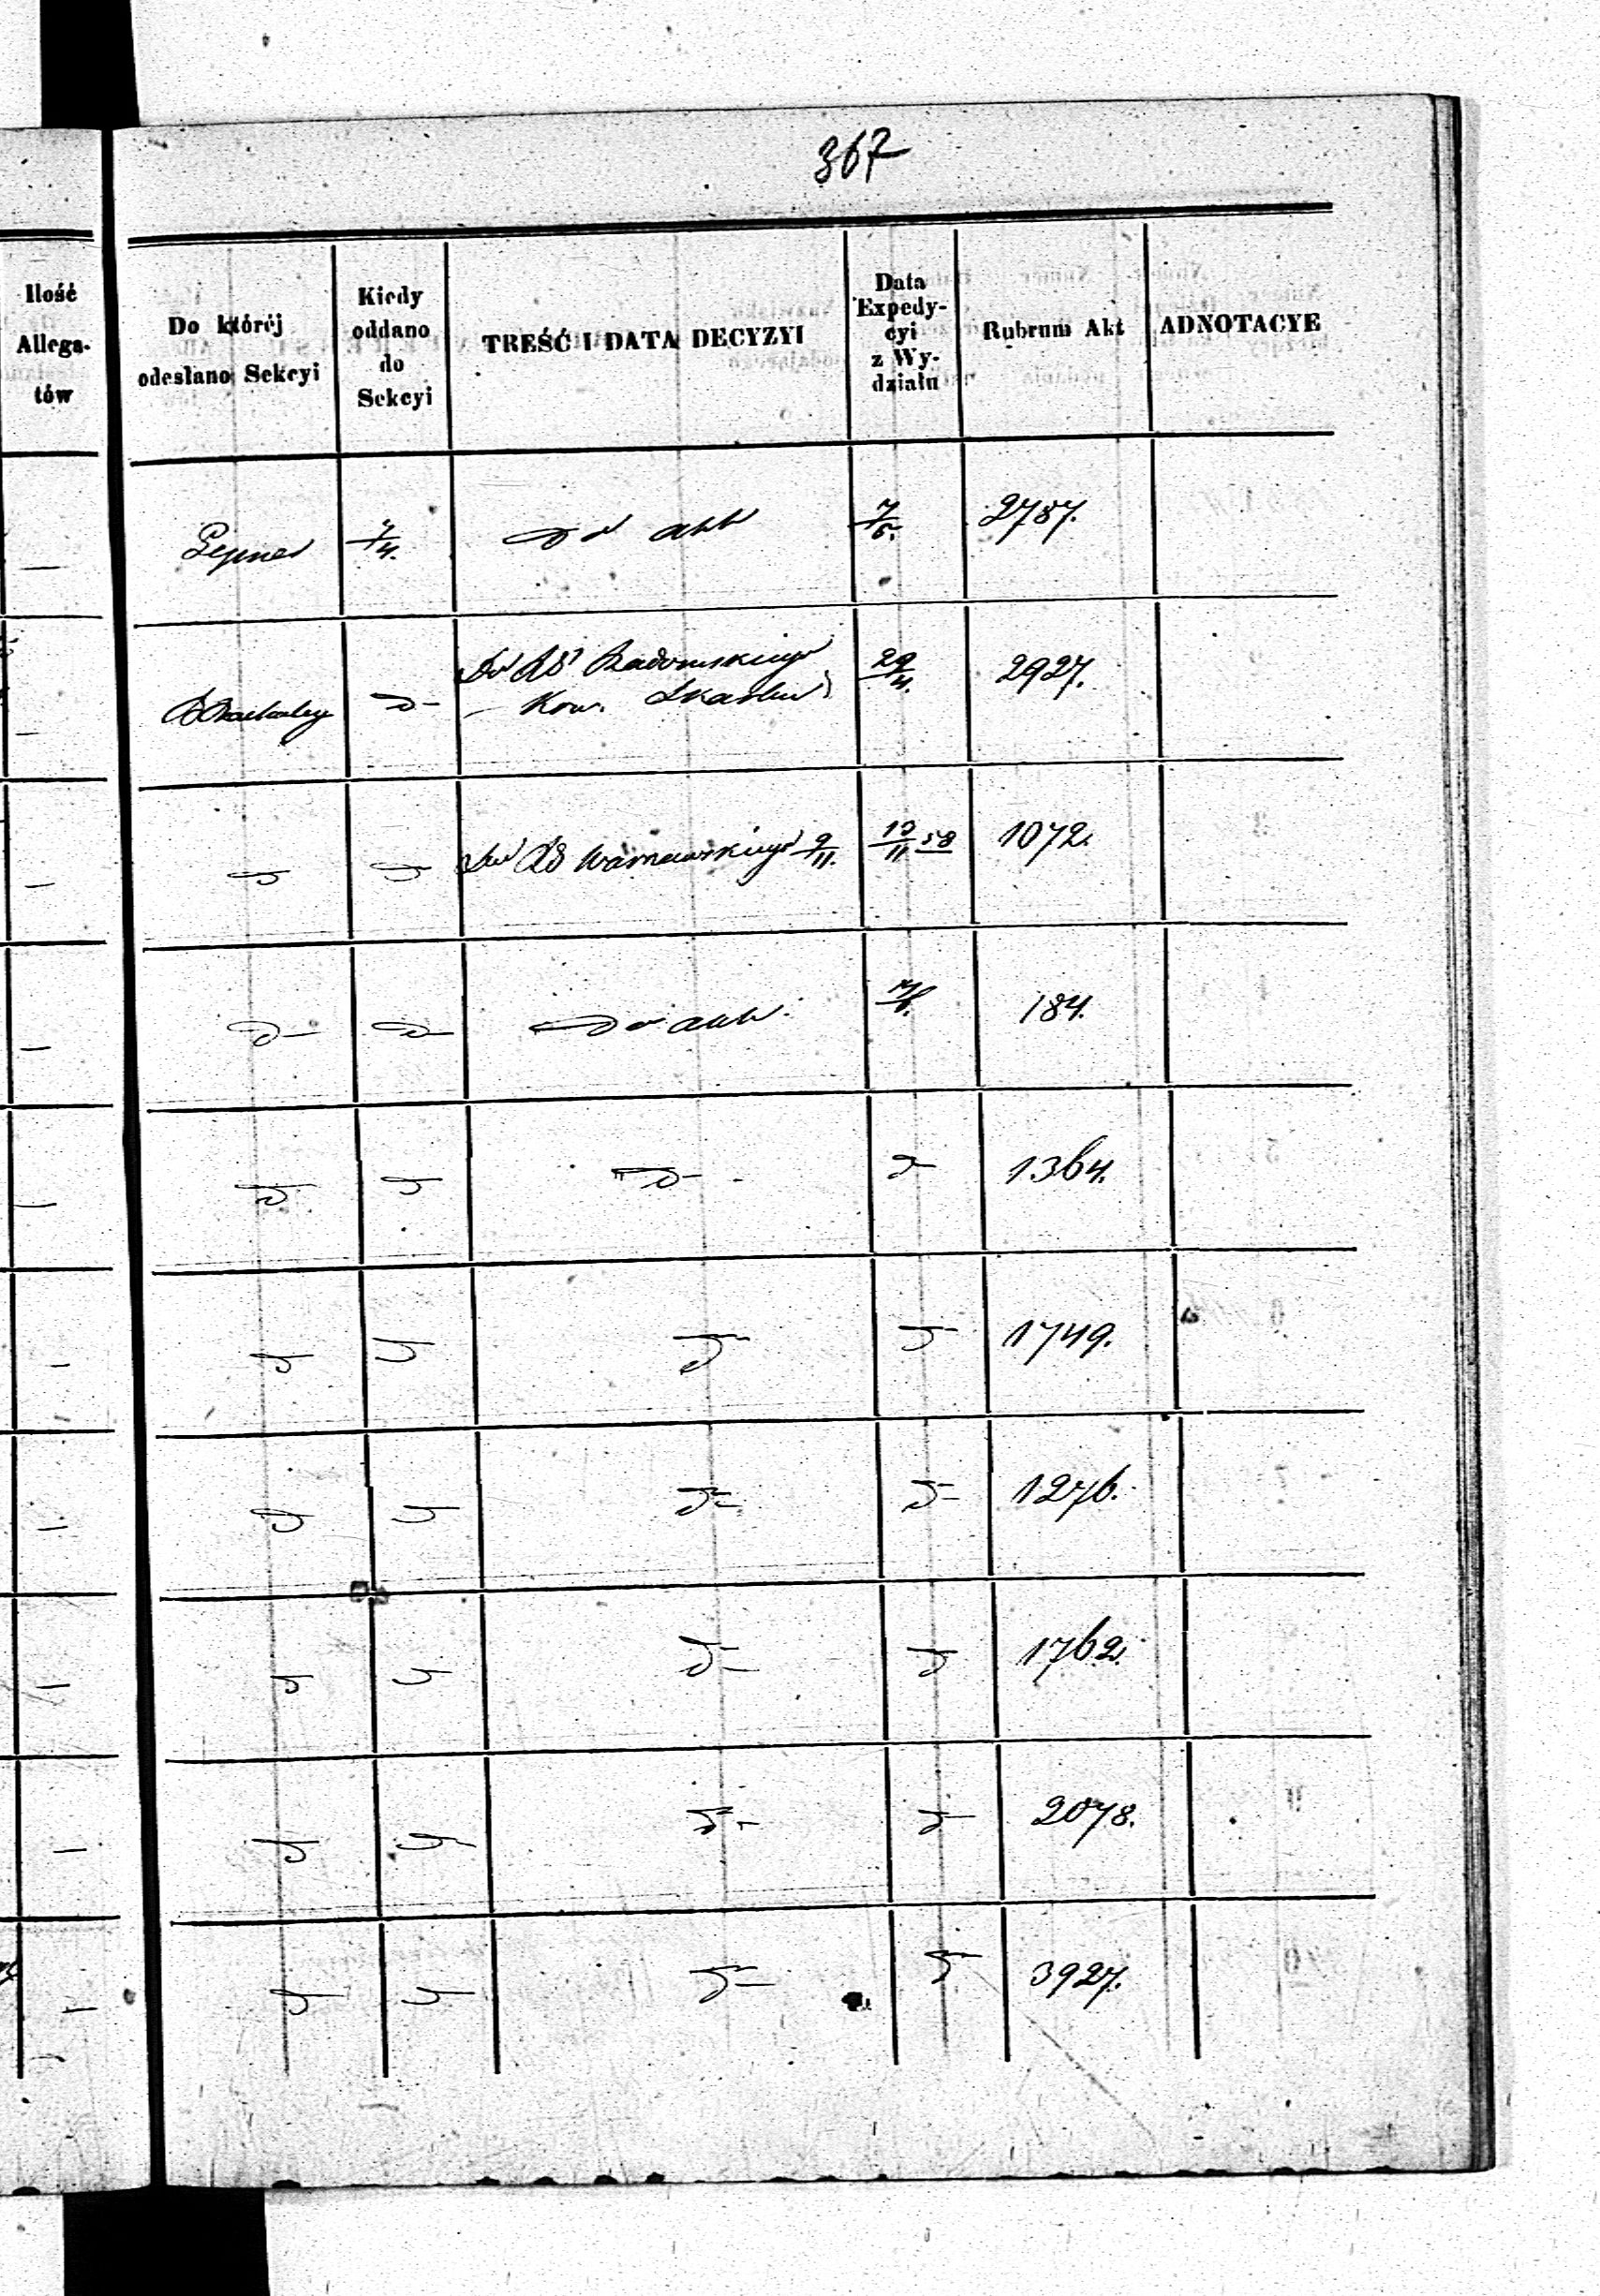 367
Ilość
Allega-
tów
Do której
odesłano Sekcyi
Kiedy
oddano
do
Sekcyi
TREŚĆ I DATA DECYZYI
Data
Expedy-
cyi
z Wy-
działu
Rubrum Akt
ADNOTACYE
7/4. Do akt 7/5. 2787.
Do RG Radomskiego 29/4. 2927.
d-
Do RG Warszawskiego 9/11. 13/11 58 1072.
d- d-
d- d- Do akt. 184.
d- d- d- d- 1364.
d- d- d- d- 1749.
d- d- d- d- 1276.
d- d- d- d- 1762.
d- d- d- d- 2078.
d- d- d- d- 3927.